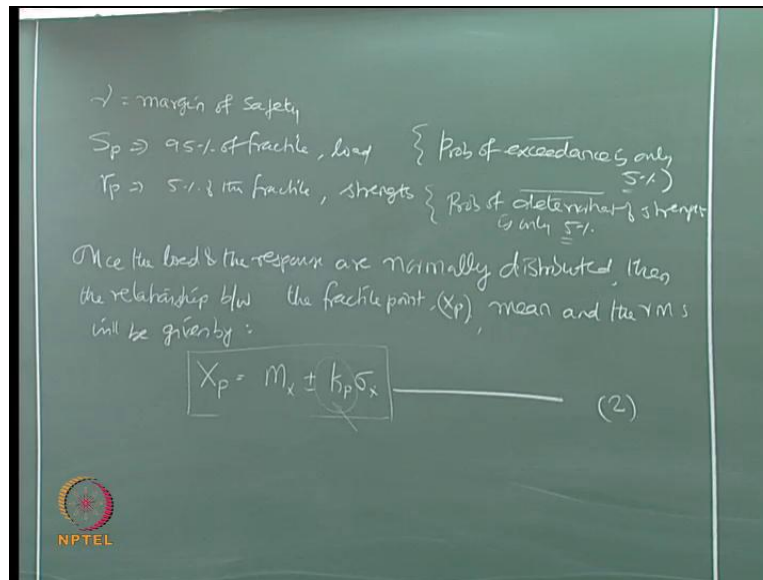 γ = margin of safety
Sp ⇒ 95% of fractile, load { Prob of exceedance is only
5%)
rp ⇒ 5% of the fractile, strength { Prob of of strength
is only 5%.
Once the load & the response are normally distributed, then
the relationship b/w the fractile point, (Xp), mean and the rms
will be given by:
Xp = mx ± kpσx (2)
NPTEL